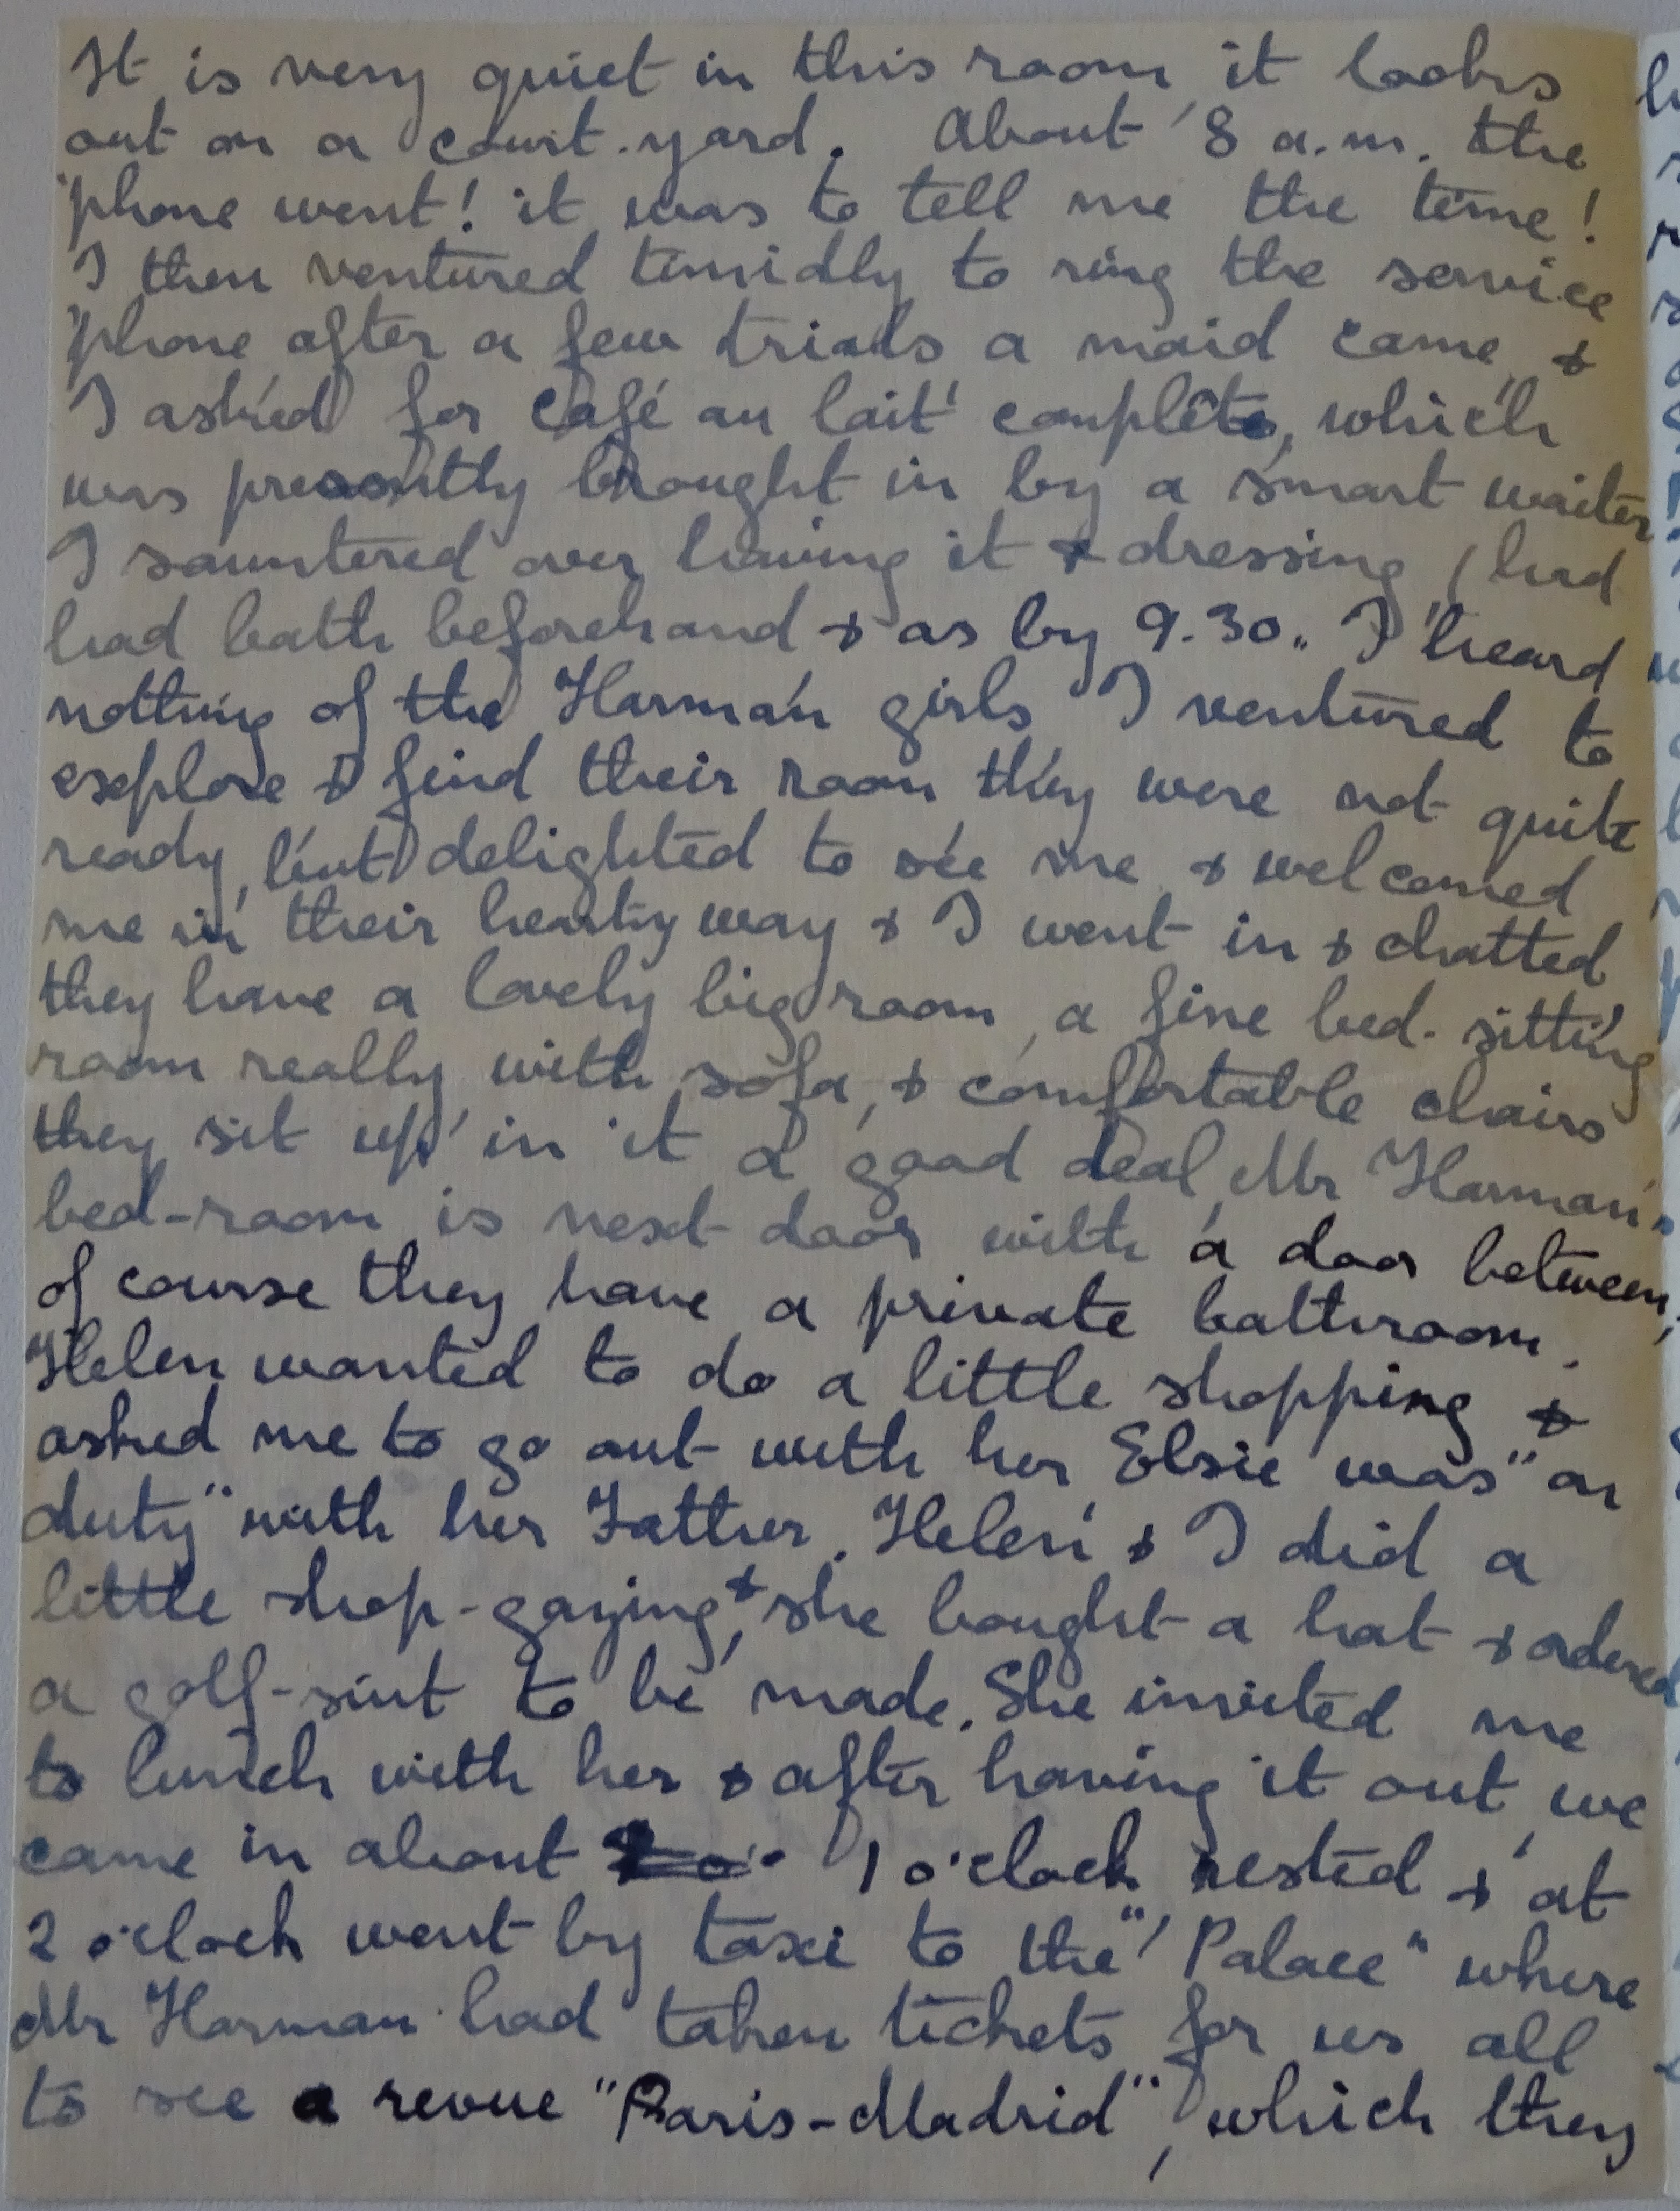 It is very quiet in this room, it looks
out on a court-yard. About 8 a.m. the
'phone went! it was to tell me the time!
I then ventured timidly to ring the service
'phone after a few trials a maid came, &
I asked for café au lait complète, which
was presently brought in by a smart waiter
I sauntered over having it & dressing, (had
had bath beforehand & as by 9.30.. I heard
nothing of the Harman girls I ventured to
explore & find their room they were not quite
ready, but delighted to see me & welcomed
me in their hearty way & I went in & chatted
they have a lovely big room, a fine bed-sitting
room really, with sofa, & comfortable chairs
they sit up in it a good deal, Mr Harman's
bed-room is next door with a door between,
of course they have a private bathroom.
Helen wanted to do a little shopping &
asked me to go out with her, Elsie was "on
duty" with her Father. Helen & I did a
little shop-gazing, & she bought a hat & ordered
a golf-suit to be made. She invited me
to lunch with her & after having it out, we
came in about 1 o'clock, rested & at
2 o'clock went by taxi to the "Palace" where
Mr Harman had taken tickets for us all
to see a revue "Paris-Madrid", which they